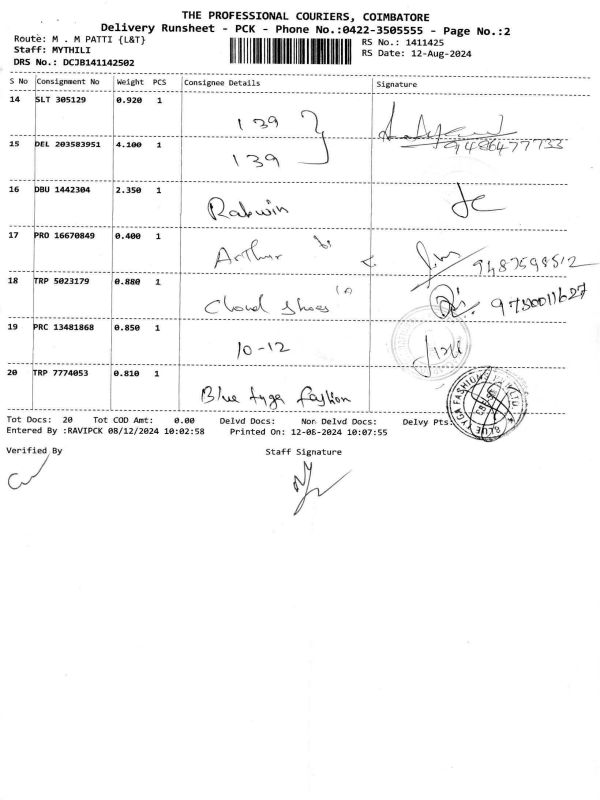 THE PROFESSIONAL COURIERS, COIMBATORE
Delivery Runsheet - PCK - Phone No.:0422-3505555 - Page No.:2
Route: M . M PATTI {L&T}
RS No.: 1411425
Staff: MYTHILI
RS Date: 12-Aug-2024
DRS No.: DCJB141142502
S No Consignment No Weight PCS Consignee Details Signature
14 SLT 305129 0.920 1 139
15 DEL 203583951 4.100 1 139 9486477733
16 DBU 1442304 2.350 1 Rabwin
17 PRO 16670849 0.400 1 Arthur 9487598512
18 TRP 5023179 0.880 1 Cloud Shoes 9750011627
19 PRC 13481868 0.850 1 10-12
20 TRP 7774053 0.810 1 Blue tyga fashion
BLUE TYGA FASHIONS
Tot Docs: 20 Tot COD Amt: 0.00 Delvd Docs: Non Delvd Docs: Delvy Pts:
Entered By :RAVIPCK 08/12/2024 10:02:58 Printed On: 12-08-2024 10:07:55
Verified By Staff Signature